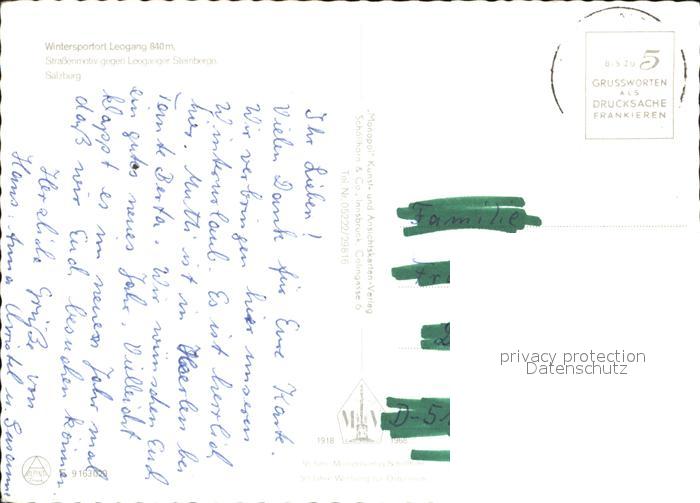 Wintersportort Leogang 840 m,
Straßenmotiv gegen Leoganger Steinberge.
Salzburg
Ihr Lieben!
Vielen Dank für Eure Karte.
Wir verbringen hier unseren
Winterurlaub. Es ist herrlich
hier. Mutti ist in bei
Tante Berta. Wir wünschen Euch
ein gutes neues Jahr. Vielleicht
klappt es im neuen Jahr mal
daß wir Euch besuchen können.
Herzliche Grüße von
Hans Anna u.
„Monopol" Kunst- und Ansichtskarten-Verlag
Schöllhorn & Co., Innsbruck, Colingasse 6
Tel Nr. 05222/29816
1918 1968
50 Jahre Werbung für Österreich
9163029
5
GRUSSWORTEN
ALS
DRUCKSACHE
FRANKIEREN
Familie
D-51
privacy protection
Datenschutz